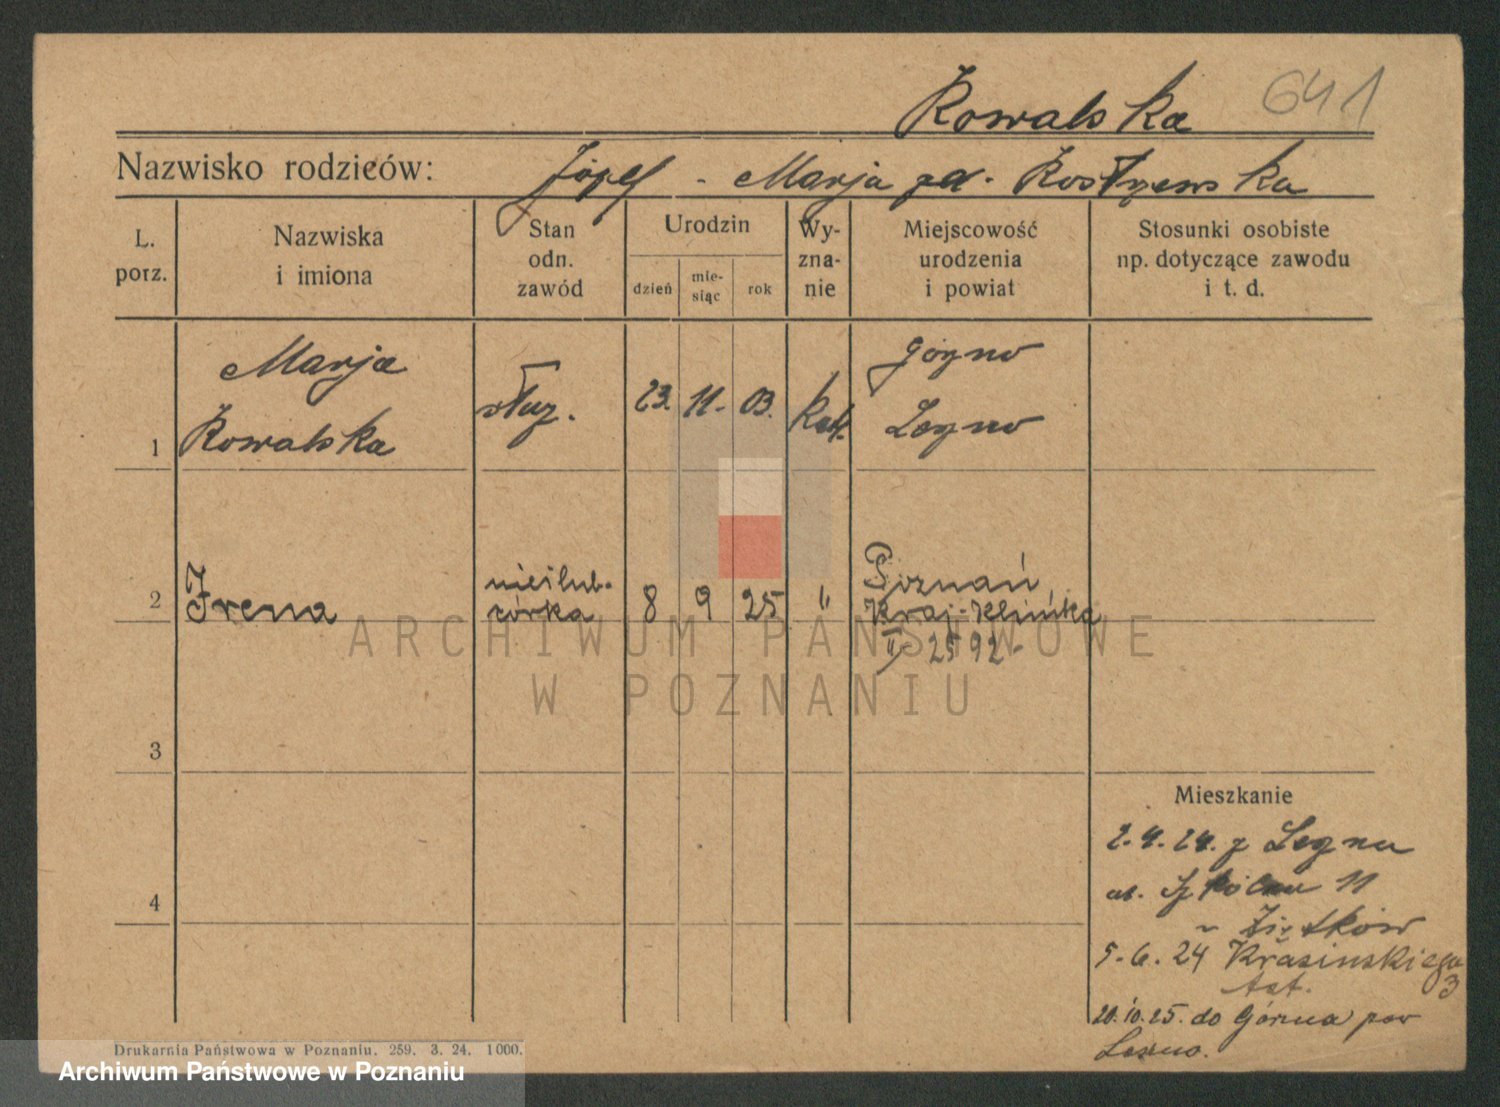 Kowalska 641
Nazwisko rodziców: Józef - Marja zd. Kostrzewska
L. porz.
Nazwiska i imiona
Stan odn. zawód
Urodzin
dzień
mie- siąc
rok
Wy- zna- nie
Miejscowość urodzenia i powiat
Stosunki osobiste np. dotyczące zawodu i t. d.
1 Marja Kowalska służ. 23. 11. 03. Kath.
2 Irena nieślub. córka 8 9 25 " Poznań Kraj. Klinika
II 2592-
3
4
Mieszkanie
2.4.24. z Legna
ul. Szkolna 11
5.6.24 Krasinskiego 3
20.10.25. do Górna pow
Drukarnia Państwowa w Poznaniu. 259. 3. 24. 1000.
ARCHIWUM PAŃSTWOWE
W POZNANIU
Archiwum Państwowe w Poznaniu